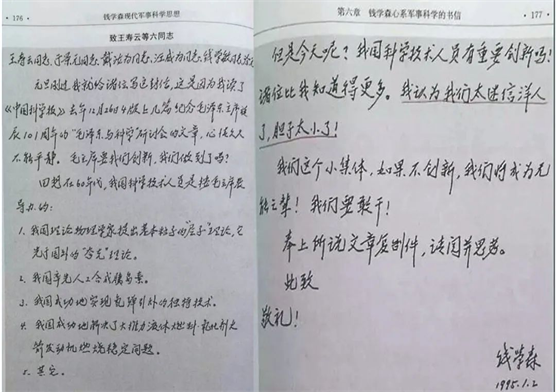 ·176·
钱学森现代军事科学思想
致王寿云等六同志
王寿云同志、于景元同志、戴汝为同志、汪成为同志、钱学敏同志
元旦刚过，我就给诸位写这封信，这是因为我读了
《中国科学报》去年12月26日4版上几篇纪念毛泽东主席诞
辰101周年的“毛泽东与科学”研讨会的文章，心情久久
不能平静。毛主席要我们创新，我们做到了吗？
回想在60年代，我国科学技术人员是按毛主席教
导办的：
1. 我国理论物理学家提出基本粒子的“层子”理论，它
先于国外的“夸克”理论。
2. 我国率先人工合成胰岛素。
3. 我国成功地实现氢弹引爆的独特技术。
4. 我国成功地解决了大推力液体燃料
箭发动机燃烧稳定问题。
5. 其它。
第六章 钱学森心系军事科学的书信
·177·
但是今天呢？我国科学技术人员有重要创新吗？
诸位比我知道得更多。我认为我们太迷信洋人
了，胆子太小了！
我们这个小集体，如果不创新，我们将成为无
能之辈！我们要敢干！
奉上所说文章复制件，请阅并思考。
此致
敬礼！
钱学森
1995.1.2